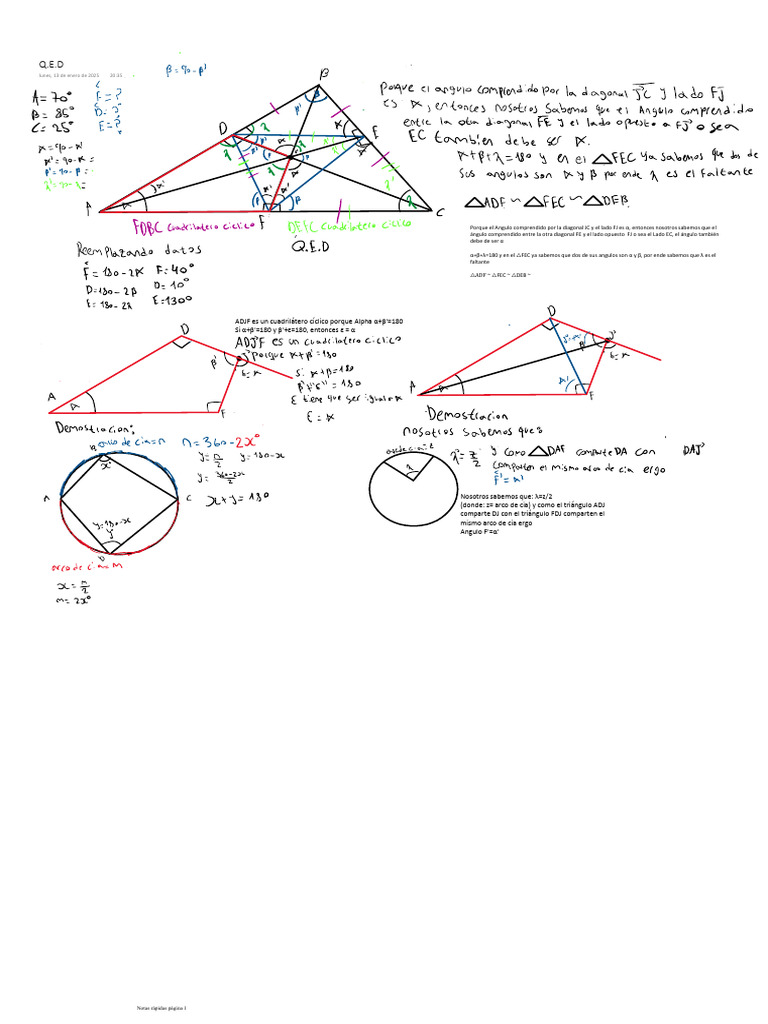 Q.E.D
lunes, 13 de enero de 2025 20:35
β = 90 - β'
A = 70°
B = 85°
C = 25°
F = ?
D = ?
E = ?
α = 90 - α'
α' = 90 - α =
β' = 90 - β =
λ' = 90 - λ =
B
D
E
A
F
C
FDBC cuadrilatero ciclico
DEFC cuadrilatero ciclico
Q.E.D
Porque el angulo comprendido por la diagonal JC y lado FJ
es α, entonces nosotros sabemos que el Angulo comprendido
entre la otra diagonal FE y el lado opuesto a FJ o sea
EC también debe ser α.
α+β+λ=180 y en el △FEC ya sabemos que dos de
sus angulos son α y β por ende λ es el faltante
△ADF ~ △FEC ~ △DEB.
Porque el Angulo comprendido por la diagonal JC y el lado FJ es α, entonces nosotros sabemos que el
ángulo comprendido entre la otra diagonal FE y el lado opuesto FJ o sea el Lado EC, el ángulo también
debe de ser α
α+β+λ=180 y en el △FEC ya sabemos que dos de sus angulos son α y β, por ende sabemos que λ es el
faltante
△ADF ~ △FEC ~ △DEB ~
Reemplazando datos
F = 180 - 2α F = 40°
D = 180 - 2β D = 10°
E = 180 - 2λ E = 130°
ADJF es un cuadrilátero cíclico porque Alpha α+β'=180
Si α+β'=180 y β'+ε=180, entonces ε = α
ADJF es un cuadrilatero ciclico
porque α+β'=180
Si α+β=180
β'+ε = 180
ε tiene que ser igual a α
ε = α
D
β'
J
ε = α
A
α
F
D
J
β'
ε = α
A
α
α'
F
Demostracion:
arco de cia = n
n = 360 - 2x°
y = n/2 y = 180 - x
y = 360-2x/2
x + y = 180
A
x
C
y = 180 - x
y
D
arco de cia = m
x = m/2
m = 2x°
Demostracion
nosotros sabemos que:
arc de ci = z
λ
λ = z/2 y como △DAF comparte DA con DAJ
comparten el mismo arco de cia ergo
F' = α'
Nosotros sabemos que: λ=z/2
(donde: z= arco de cia) y como el triángulo ADJ
comparte DJ con el triángulo FDJ comparten el
mismo arco de cia ergo
Angulo F'=α'
Notas rápidas página 1